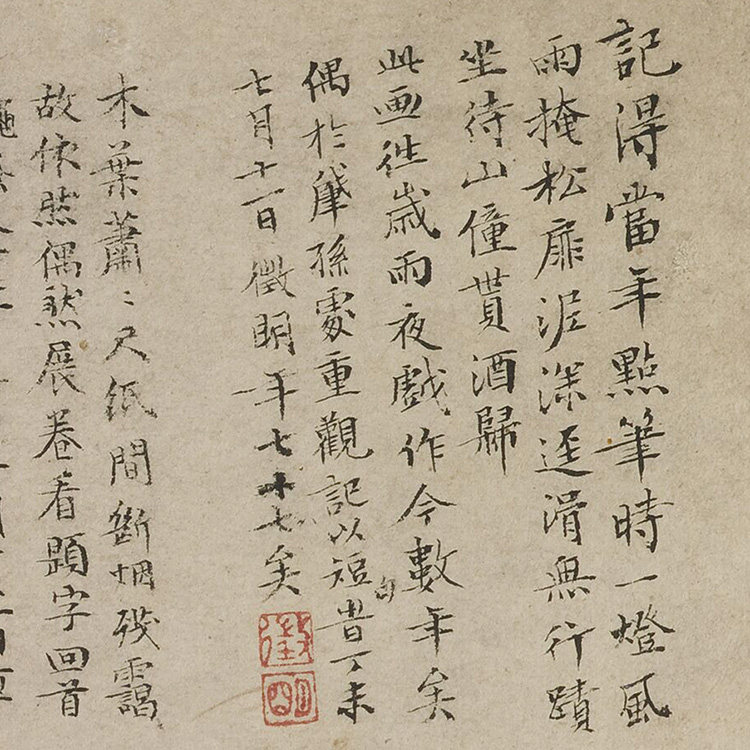 記得當年點筆時一燈風
雨掩松扉泥深逕滑無行蹟
坐待山僮貰酒歸
此画往歲雨夜戲作今數年矣
偶於肇孫處重觀記以短句昔丁未
七月十一日徵明年七十七矣
徵明
木葉蕭〻尺紙間斷烟殘靄
故依然偶然展卷看題字回首